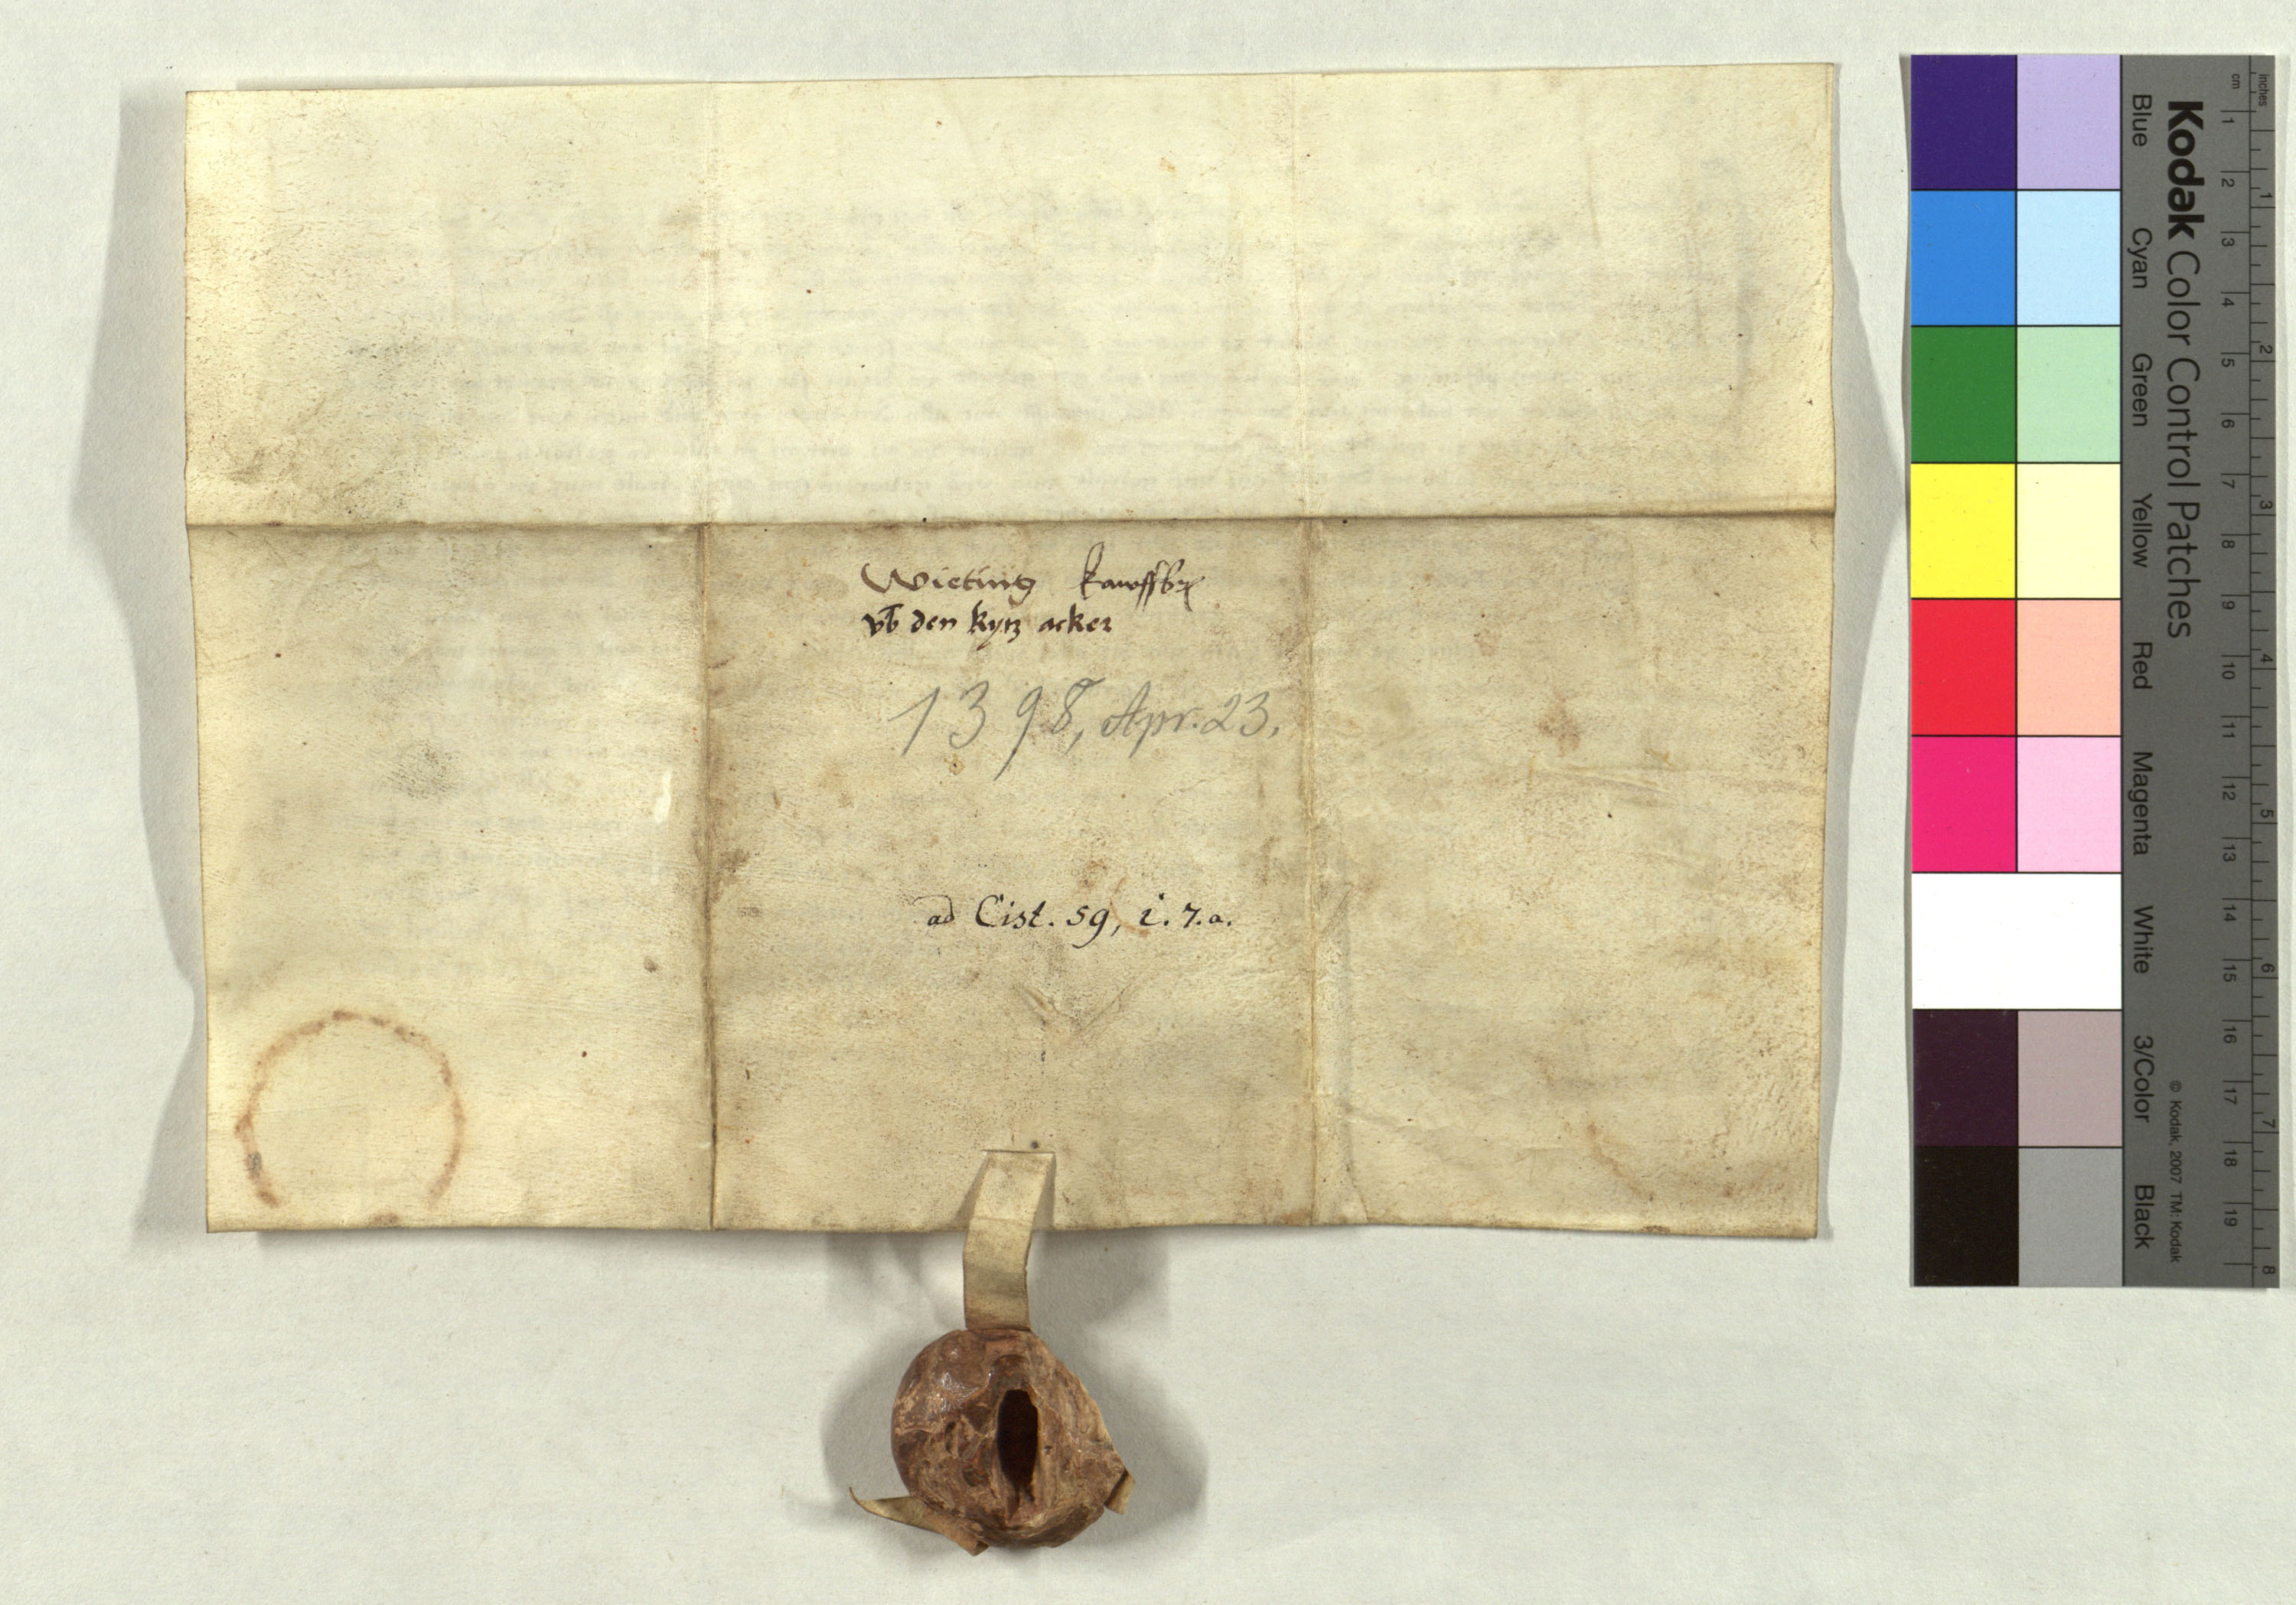 Wieting kauffbr
vb den kytz acker
1398, Apr. 23.
ad Cist. 59, i. 7. a.
Kodak Color Control Patches
Blue Cyan Green Yellow Red Magenta White 3/Color Black
© Kodak, 2007 TM: Kodak
cm 1 2 3 4 5 6 7 8 9 10 11 12 13 14 15 16 17 18 19
inches 1 2 3 4 5 6 7 8